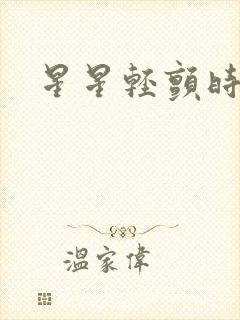 星星輕顫時
溫家偉